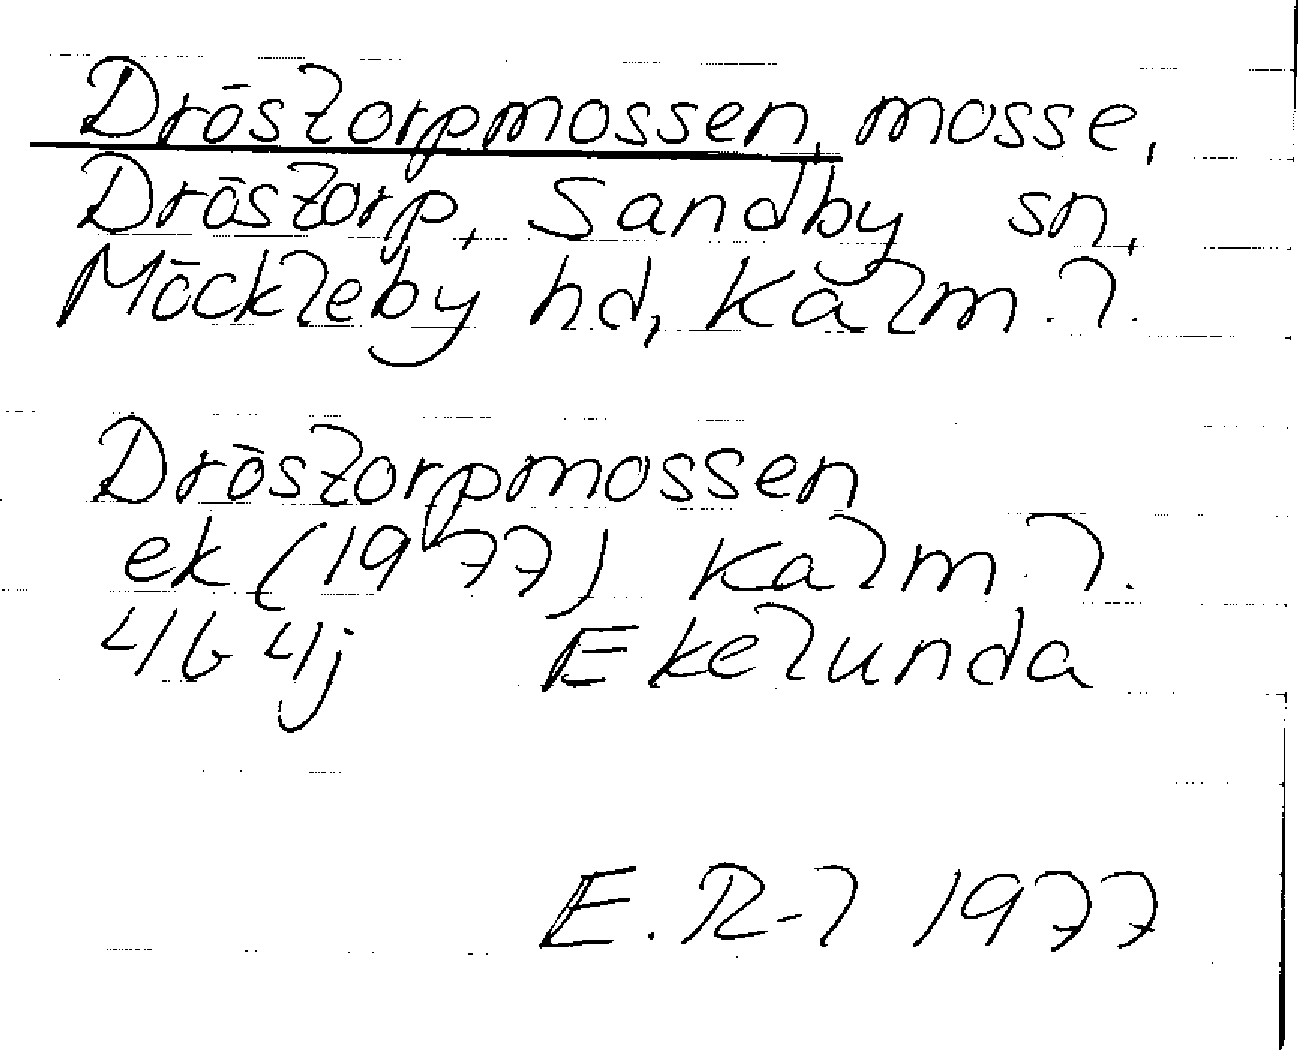 Dröstorpmossen, mosse,
Dröstorp, Sandby sn,
Möckleby hd, Kalm. l.
Dröstorpmossen
ek (1977) Kalm. l.
4G 4j Ekelunda
E. R-l 1977